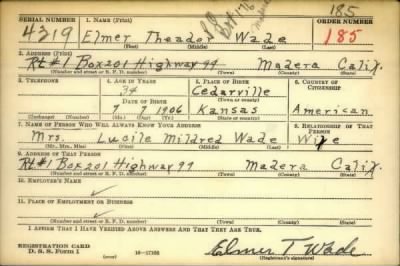 185
SERIAL NUMBER 1. NAME (Print) ORDER NUMBER
4319 Elmer Theader Wade 185
(First) (Middle) (Last)
2. ADDRESS (Print)
Rt#1 Box 201 Highway 99 Madera Calif.
(Number and street or R. F. D. number) (Town) (County) (State)
3. TELEPHONE 4. AGE IN YEARS 5. PLACE OF BIRTH 6. COUNTRY OF CITIZENSHIP
34 Cedarville
DATE OF BIRTH (Town or county)
9 1906 Kansas American
(Exchange) (Number) (Mo.) (Day) (Yr.) (State or country)
7. NAME OF PERSON WHO WILL ALWAYS KNOW YOUR ADDRESS 8. RELATIONSHIP OF THAT PERSON
Mrs. Lucile Mildred Wade Wife
(Mr., Mrs., Miss) (First) (Middle) (Last)
9. ADDRESS OF THAT PERSON
Rt#1 Box 201 Highway 99 Madera Calif.
(Number and street or R. F. D. number) (Town) (County) (State)
10. EMPLOYER'S NAME
11. PLACE OF EMPLOYMENT OR BUSINESS
(Number and street or R. F. D. number) (Town) (County) (State)
I AFFIRM THAT I HAVE VERIFIED ABOVE ANSWERS AND THAT THEY ARE TRUE.
REGISTRATION CARD
D. S. S. Form 1 16-17105 Elmer T. Wade
(Registrant's signature)